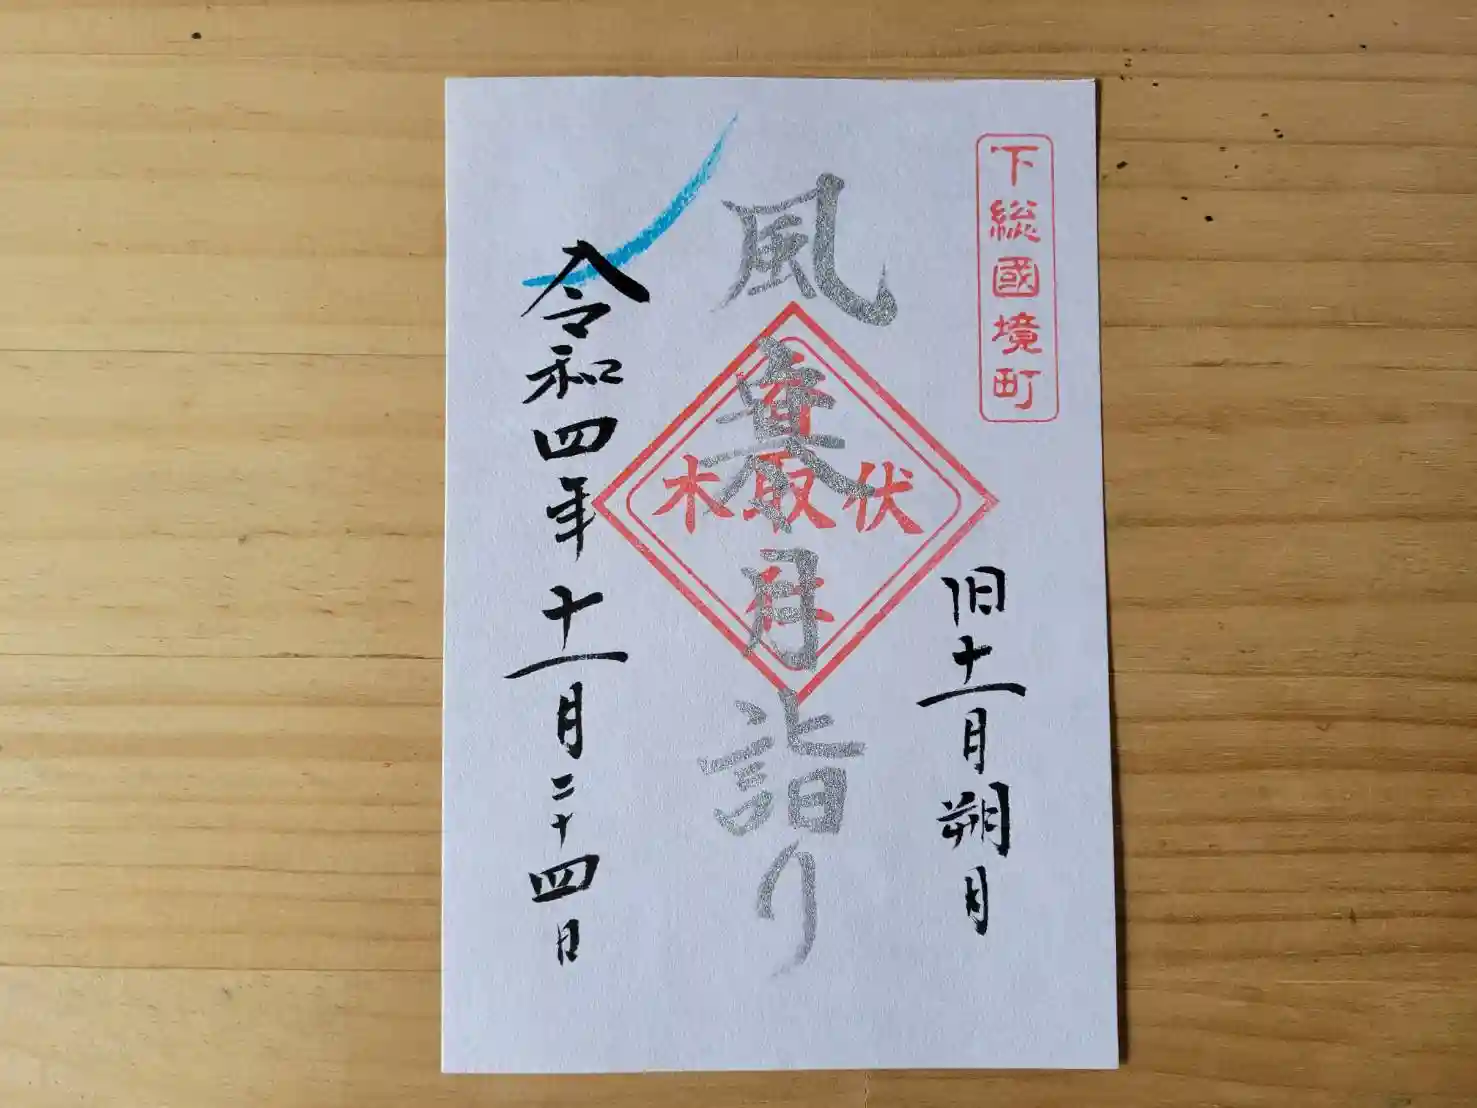 下総國境町
旧十一月朔月
風寒月詣り
伏木
香取社
令和四年十一月二十四日